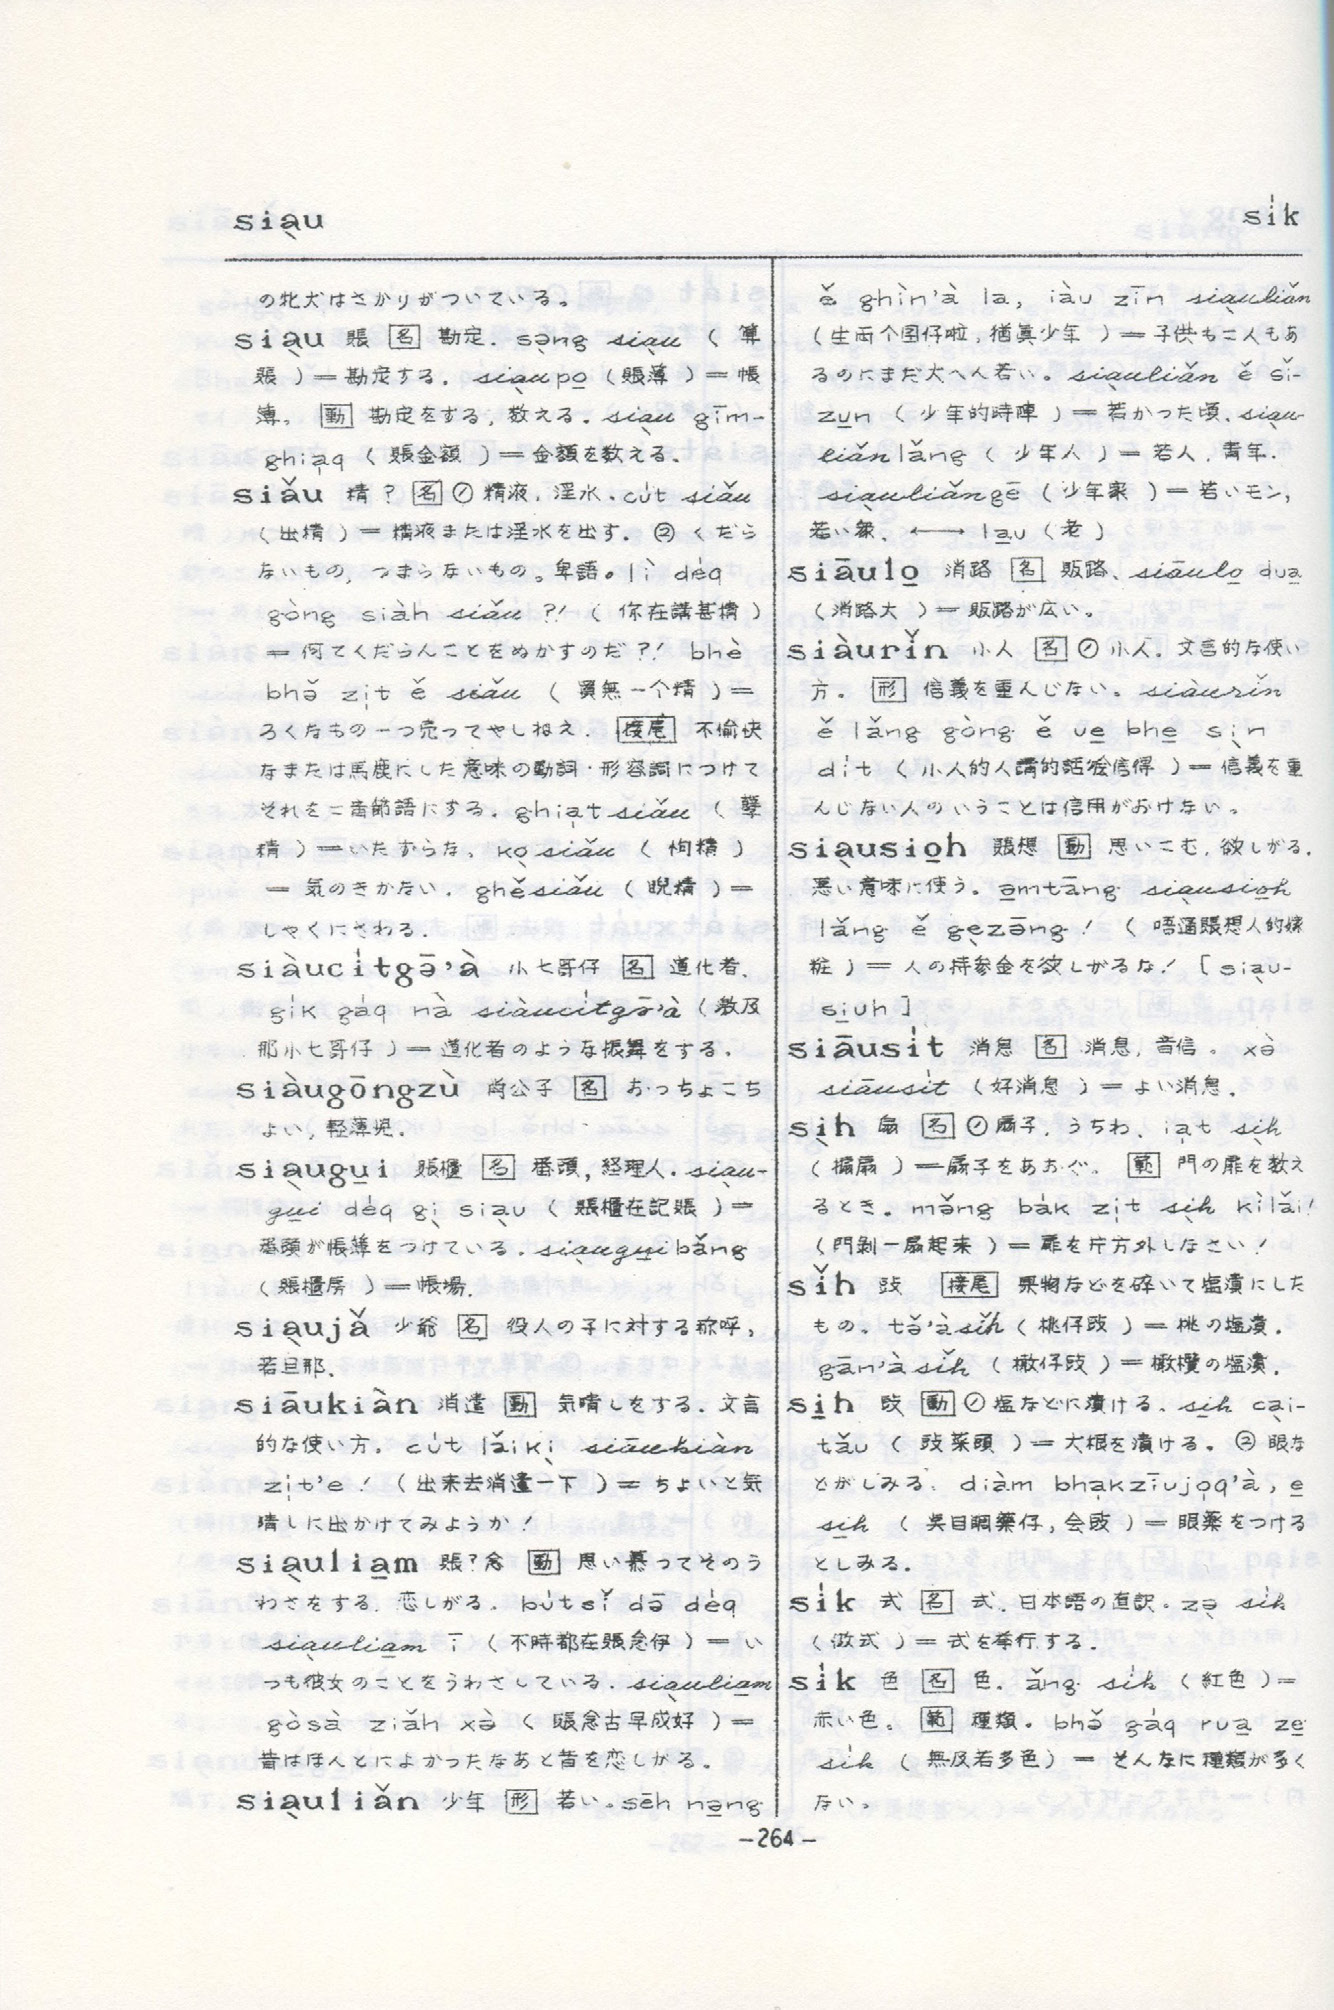 siạu
si̍k
の牝犬はさかりがついている。
siạu 賬 名 勘定．sə̣ng siạu （ 算
賬 ）＝勘定する．siạupo̱（賬簿 ）＝帳
簿。 動 勘定をする，数える．siạu gīm-
ghiạq （ 賬金額 ）＝金額を数える。
siǎu 精？ 名 ①精液，淫水．cu̍t siǎu
（出精）＝精液または淫水を出す．②くだら
ないもの，つまらないもの。卑語。lì de̍q
gòng siàh siǎu ?!（ 你在講甚精 ）
＝何てくだらんことをぬかすのだ?! bhè
bhə̌ zi̍t ě siǎu （ 買無一个精 ）＝
ろくなもの一つ売ってやしねえ． 接尾 不愉快
なまたは馬鹿にした意味の動詞·形容詞につけて
それを二音節語にする．ghiạt siǎu （ 孼
精 ）＝いたずらな．kọ siǎu （ 怐精 ）
＝気のきかない．ghěsiǎu （ 睨精 ）＝
しゃくにさわる．
siàuci̍tgə̄'à 小七哥仔 名 道化者．
gi̍k ga̍q nà siàuci̍tgə̄'à（激及
那小七哥仔 ）＝道化者のような振舞をする．
siàugōngzù 尙公子 名 おっちょこち
ょい，軽薄児．
siạugu̱i 賬櫃 名 番頭，経理人．siạu-
gu̱i de̍q gị siạu （ 賬櫃在記賬 ）＝
番頭が帳簿をつけている．siạugu̱ibǎng
（賬櫃房 ）＝帳場．
siạujǎ 少爺 名 役人の子に対する称呼，
若旦那．
siāukiàn 消遣 動 気晴しをする．文言
的な使い方．cu̍t lǎikị siāukiàn
zi̍t'e！（出来去消遣一下 ）＝ちょいと気
晴しに出かけてみようか！
siạulia̱m 賬？念 動 思い慕ってそのう
わさをする．恋しがる．bu̍tsǐ dō de̍q
siạulia̱m ī （不時都在賬念伊 ）＝い
つも彼女のことをうわさしている．siạulia̱m
gòsà ziǎh xə̀ （ 賬念古早成好 ）＝
昔はほんとによかったなあと昔を恋しがる。
siạuliǎn 少年 形 若い．sēh nə̱ng
ě ghìn'à la, iàu zīn siạuliǎn
（生両个囝仔啦，猶眞少年 ）＝子供も二人もあ
るのにまだ大へん若い。siạuliǎn ě sǐ-
zu̱n （少年的時陣 ）＝若かった頃．siạu-
liǎnlǎng（ 少年人 ）＝若人，青年．
siạuliǎngē（少年家 ）＝若いモン，
若い衆．←→la̱u（老）
siāulo̱ 消路 名 販路．siāulo̱ dua̱
（消路大 ）＝販路が広い。
siàurǐn 小人 名 ①小人．文言的な使い
方． 形 信義を重んじない。siàurǐn
ě lǎng gòng ě ue̱ bhe̱ sịn
di̍t（小人的人講的話䆀信得 ）＝信義を重
んじない人のいうことは信用がおけない。
siạusio̱h 賬想 動 思いこむ，欲しがる．
悪い意味に使う。a̱mtāng siạusio̱h
lǎng ě gẹzōng！（ 唔通賬想人的嫁
粧 ）＝人の持参金を欲しがるな！［siạu-
siu̱h］
siāusi̍t 消息 名 消息，音信． xə̀
siāusi̍t（好消息 ）＝よい消息．
sịh 扇 名 ①扇子，うちわ．ia̍t sịh
（ 擛扇 ）＝扇子をあおぐ。 範 門の扉を数え
るとき．mə̌ng ba̍k zi̍t sịh kìlǎi！
（門剝一扇起来 ）＝扉を片方外しなさい！
sǐh 豉 接尾 果物などを砕いて塩漬にした
もの．tə̌'à sǐh（桃仔豉 ）＝桃の塩漬．
gān'à sǐh（橄仔豉 ）＝橄欖の塩漬．
si̱h 豉 動 ①塩などに漬ける．si̱h cại-
tǎu （ 豉菜頭 ）＝大根を漬ける。②眼な
どがしみる．diàm bha̍kzīujo̍q'à, e̱
si̱h （ 点目睭薬仔，会豉 ）＝眼薬をつける
としみる．
si̍k 式 名 式．日本語の直訳．zə̣ si̍k
（做式 ）＝式を挙行する．
si̍k 色 名 色．ǎng si̍k（紅色）＝
赤い色． 範 種類．bhə̌ ga̍q rua̱ ze̱
si̍k （ 無及若多色）＝ そんなに種類が多く
ない。
－264－